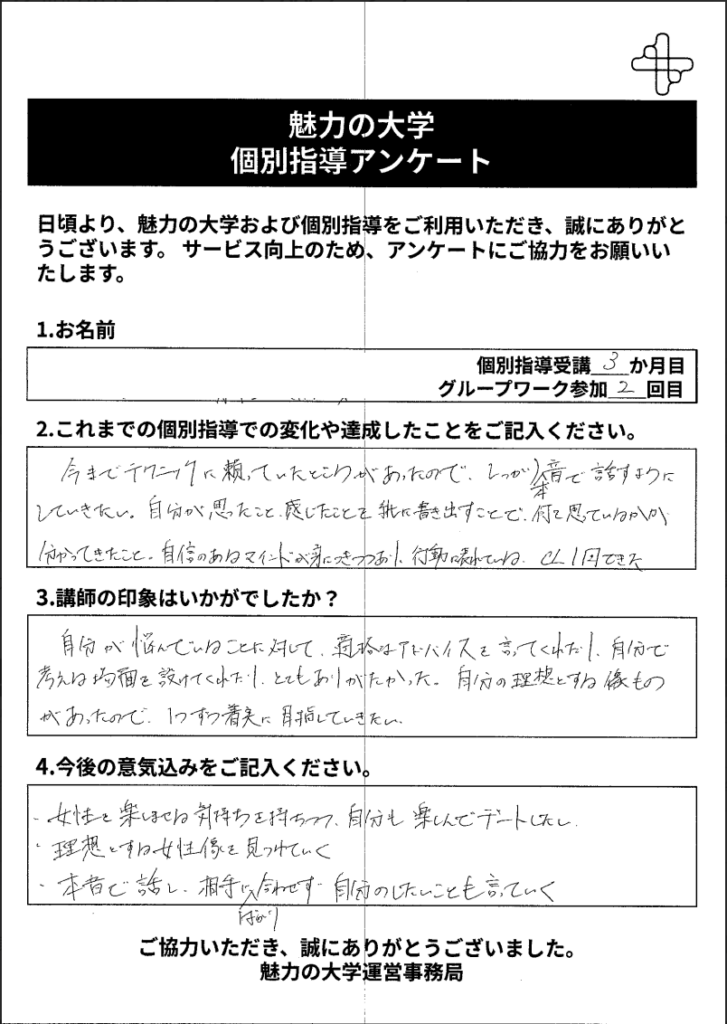 魅力の大学
個別指導アンケート
日頃より、魅力の大学および個別指導をご利用いただき、誠にありがと
うございます。 サービス向上のため、アンケートにご協力をお願いい
たします。
1.お名前
個別指導受講 3 か月目
グループワーク参加 2 回目
2.これまでの個別指導での変化や達成したことをご記入ください。
今までテクニックに頼っていたところがあったので、しっかり本音で話すように
していきたい。自分が思ったこと、感じたことを紙に書き出すことで、何を思っているかが
分かってきたこと。自信のあるマインドが身につきつつあり、行動に表れている。CL1回できた
3.講師の印象はいかがでしたか？
自分が悩んでいることに対して、適格なアドバイスを言ってくれたり、自分で
考える場面を設けてくれたり、とてもありがたかった。自分の理想とする像もの
があったので、1つずつ着実に目指していきたい。
4.今後の意気込みをご記入ください。
・女性を楽しませる気持ちを持ちつつ、自分も楽しんでデートしたい。
・理想とする女性像を見つけていく
・本音で話し、相手にばかり合わせず自分のしたいことも言っていく
ご協力いただき、誠にありがとうございました。
魅力の大学運営事務局